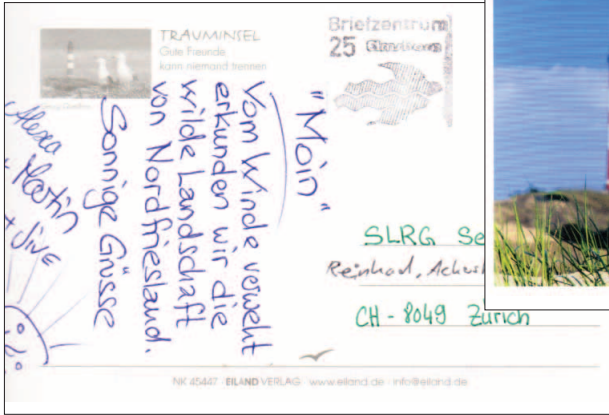 TRAUMINSEL
Gute Freunde
kann niemand trennen
Briefzentrum
25
"Moin"
Vom Winde verweht
erkunden wir die
wilde Landschaft
von Nordfriesland.
Sonnige Grüsse
Alexa
Martin
+
SLRG Se
CH - 8049 Zürich
NK 45447 EILAND VERLAG www.eiland.de info@eiland.de